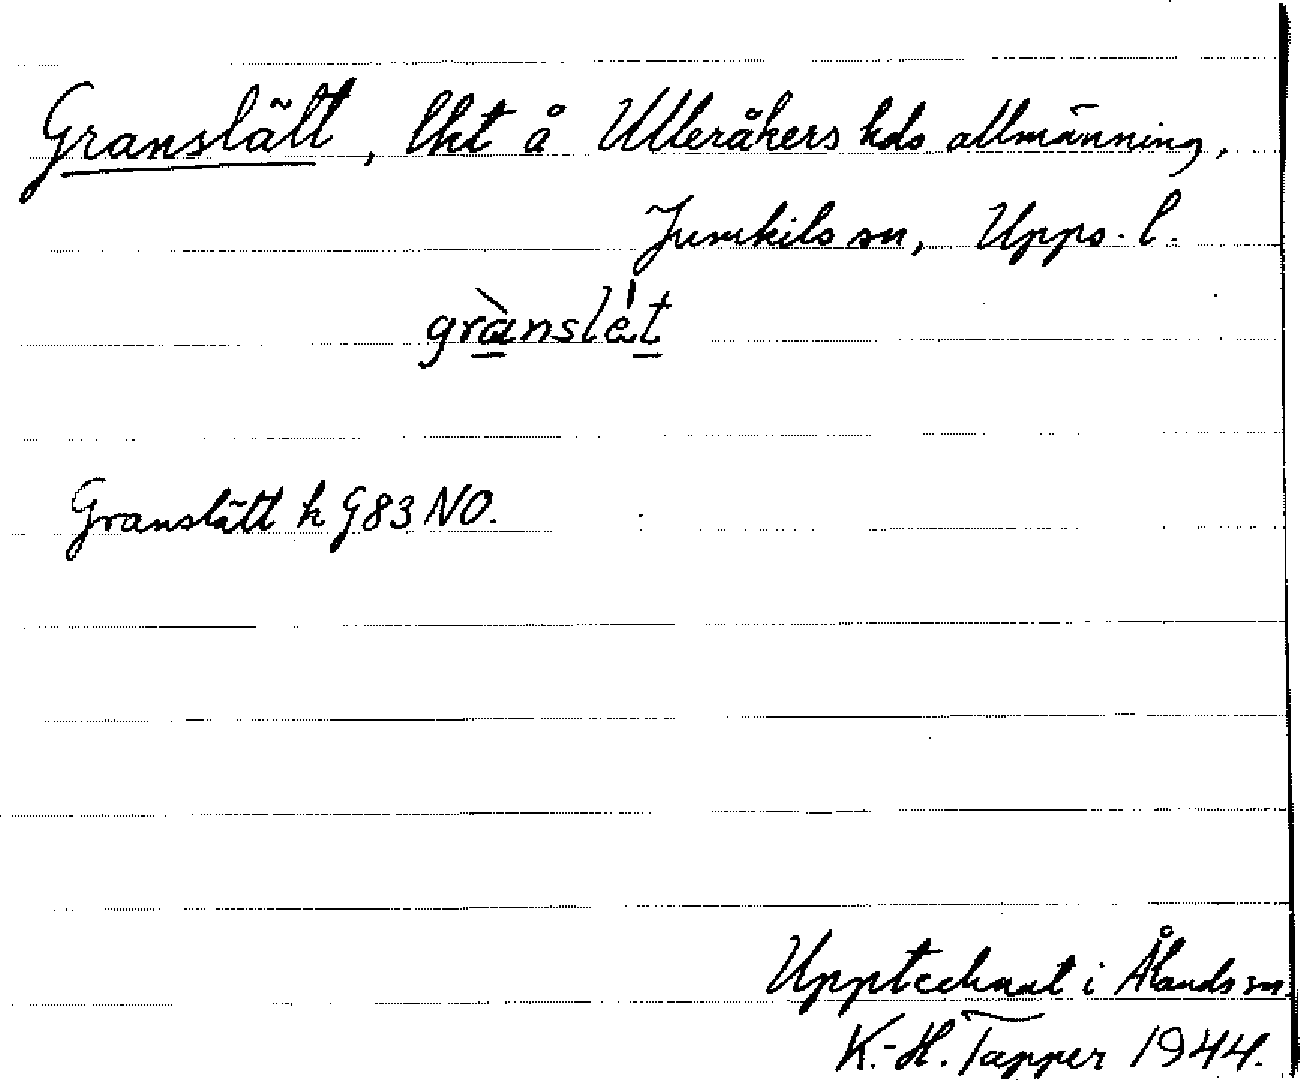 Granslätt, lkt å Ulleråkers hds allmänning,
Jumkils sn, Upps. l.
grànslét
Granslätt k G83 NO.
Upptecknat i Ålands sn.
K.-H. Tapper 1944.